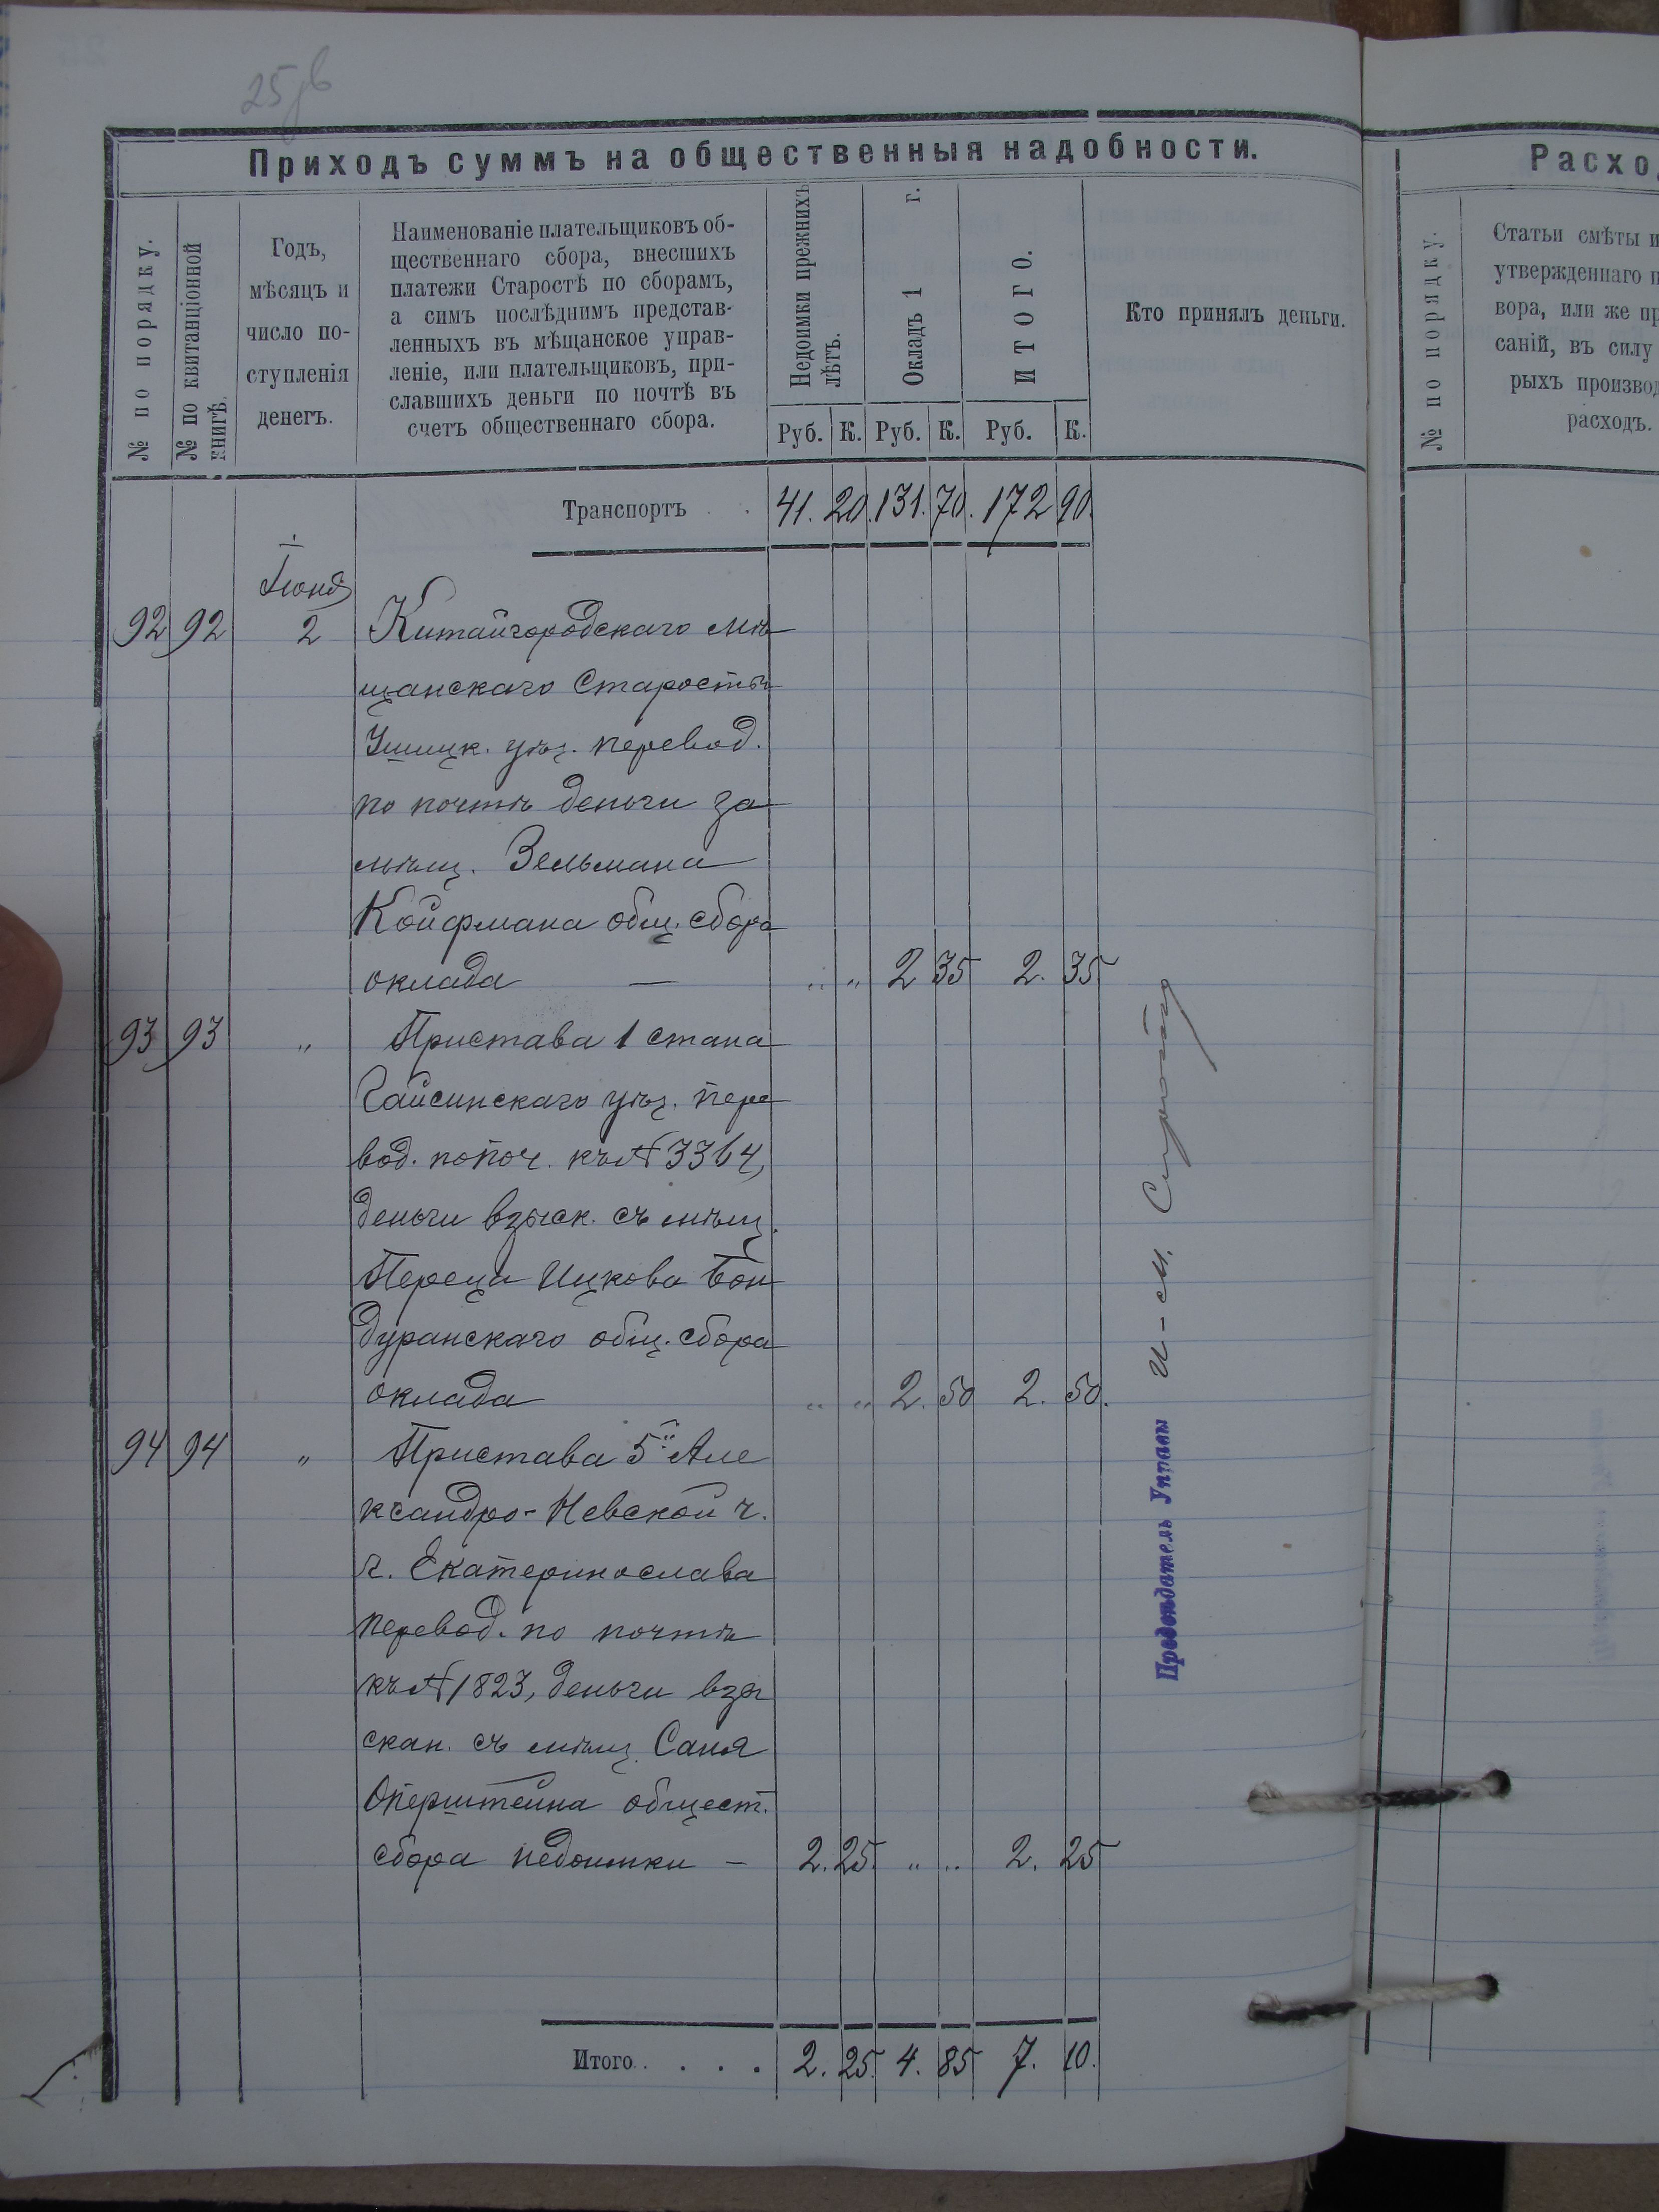 25 об
Приходъ суммъ на общественныя надобности.
№ по порядку.
№ по квитанціонной
книгѣ.
Годъ,
мѣсяцъ и
число по-
ступленія
денегъ.
Наименованіе плательщиковъ об-
щественнаго сбора, внесшихъ
платежи Старостѣ по сборамъ,
а симъ послѣднимъ представ-
ленныхъ въ мѣщанское управ-
леніе, или плательщиковъ, при-
славшихъ деньги по почтѣ въ
счетъ общественнаго сбора.
Недоимки прежнихъ
лѣтъ.
Окладъ 1 г.
ИТОГО.
Руб. К. Руб. К. Руб. К.
Кто принялъ деньги.
Транспортъ . . 41. 20. 131. 70. 172 90.
Іюня
92 92 2 Китайгородскаго мѣ
щанскаго Старосты
Ушицк. уѣз. перевод.
по почтѣ деньги за
мѣщ. Зельмана
Койфмана общ. сбора
оклада — „ „ 2 35 2. 35.
93 93 „ Пристава 1 стана
Гайсинскаго уѣз. пере
вод. по поч. къ № 3364,
деньги взыск. съ мѣщ.
Переца Ицкова Бон
дуранскаго общ. сбора
оклада „ „ 2. 50 2. 50.
94 94 „ Пристава 5й Але
ксандро-Невской ч.
г. Екатеринослава
перевод. по почтѣ
къ № 1823, деньги взы
скан. съ мѣщ. Саня
Оперштейна общест.
сбора недоимки — 2. 25. „ „ 2. 25
Итого . . . . 2. 25. 4. 85 7. 10.
Предсѣдатель Управы И - М.
Расхо
№ по порядку.
Статьи смѣты и
утвержденнаго п
вора, или же пр
саній, въ силу
рыхъ производ
расходъ.